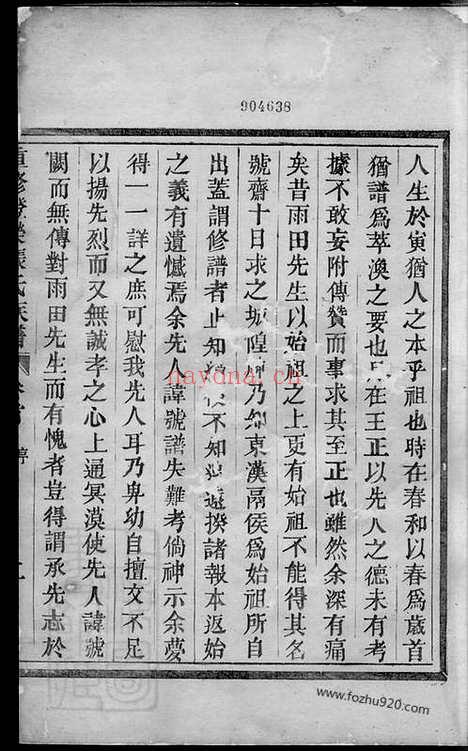 904638
人生於寅猶人之本乎祖也時在春和以春爲歲首
猶譜爲萃渙之要也在王正以先人之德未有考
據不敢妄附傳贊而事求其至正也雖然余深有痛
矣昔雨田先生以始祖之上更有始祖不能得其名
號齋十日求之城隍神乃知東漢鬲侯爲始祖所自
出蓋謂修譜者止知不知遊撰諸報本返始
之義有遺憾焉余先人諱號譜失難考倘神示余夢
得一一詳之庶可慰我先人耳乃卑幼自擅文不足
以揚先烈而又無誠孝之心上通冥漠使先人諱號
闕而無傳對雨田先生而有愧者豈得謂承先志於
重修登榮張氏族譜
naydna.ch
www.fozhu920.com